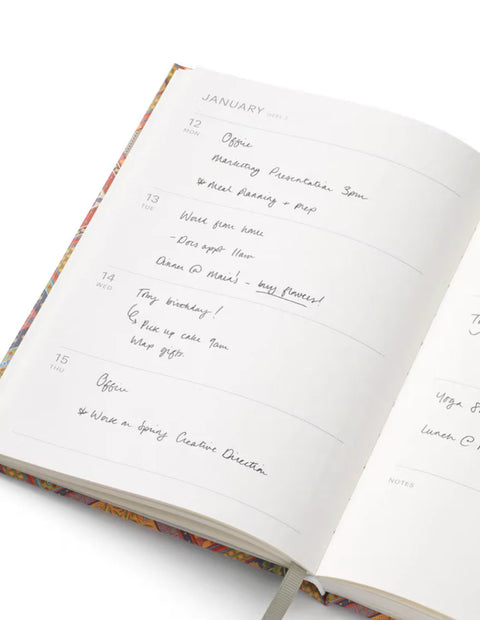 JANUARY WEEK 2
12
MON
Office
Marketing Presentation 3pm
* Meal Planning + Prep
13
TUE
Work from home
- Docs appt 11am
Dinner @ Maia's - buy flowers!
14
WED
Tony birthday!
↳ Pick up cake 9am
Wrap gifts.
15
THU
Office
* Work on Spring Creative Direction
Yoga
Lunch @
NOTES